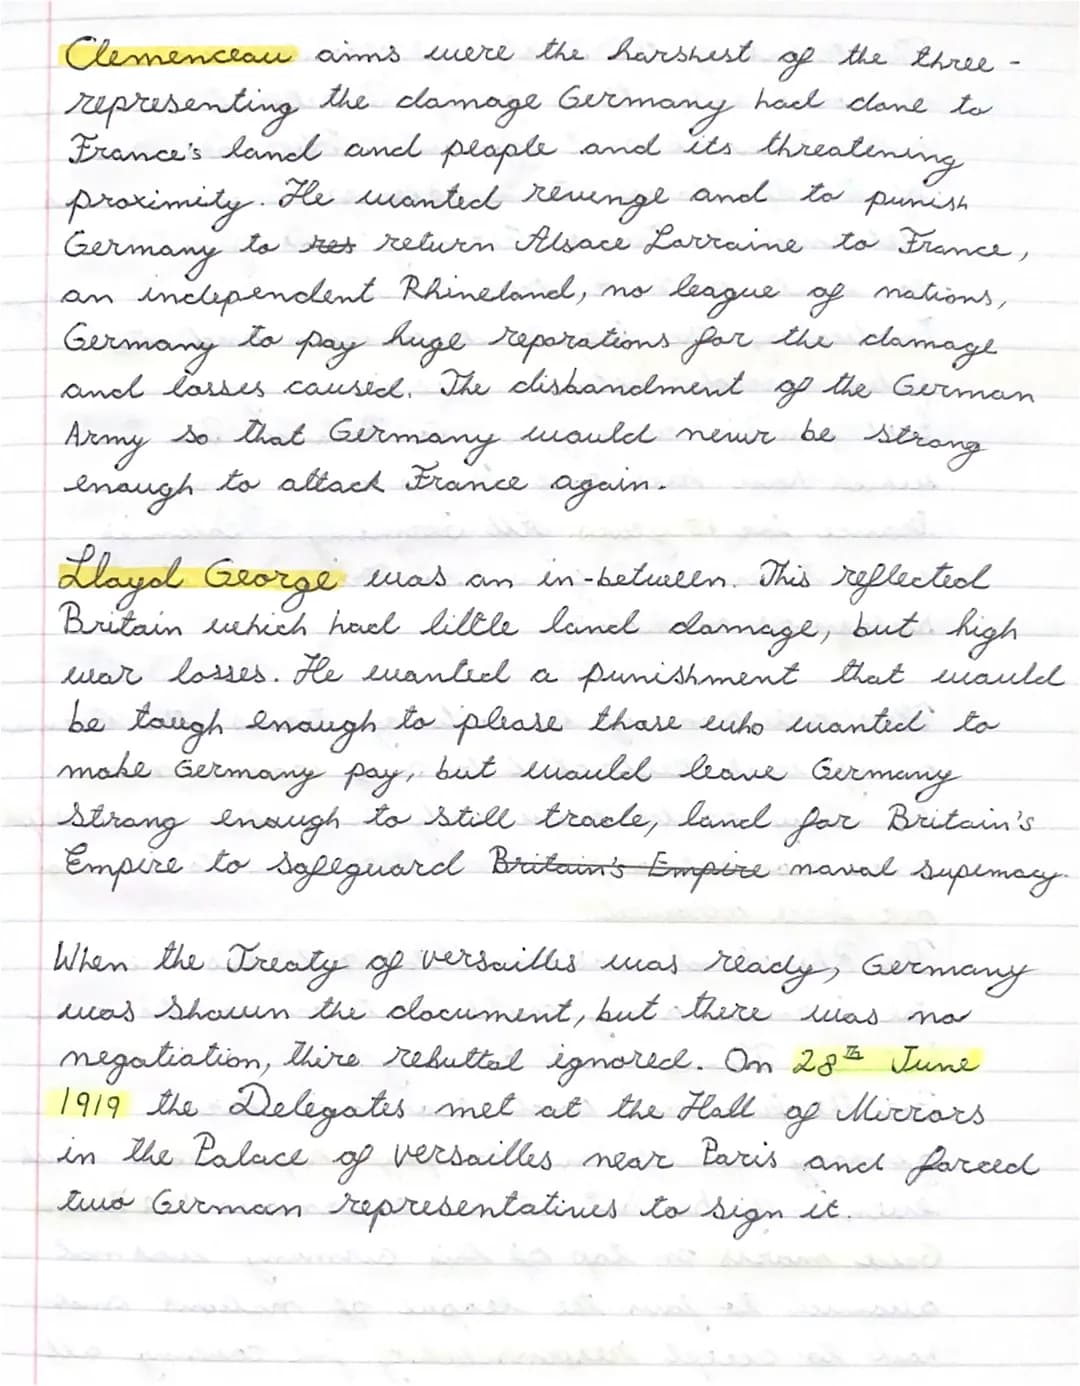 Clemenceau aims were the harshest of the three -
representing the damage Germany had done to
France's land and people and its threatening
proximity. He wanted revenge and to punish
Germany to res return Alsace Lorraine to France,
an independent Rhineland, no league of nations,
Germany to pay huge reparations for the damage
and losses caused. The disbandment of the German
Army so that Germany would never be strong
enough to attack France again.
Lloyd George was an in-between. This reflected
Britain which had little land damage, but high
war losses. He wanted a punishment that would
be tough enough to please those who wanted to
make Germany pay, but would leave Germany
strong enough to still trade, land for Britain's
Empire to safeguard Britain's Empire naval supemacy.
When the Treaty of versailles was ready, Germany
was shown the document, but there was no
negotiation, thire rebuttal ignored. On 28th June
1919 the Delegates met at the Hall of Mirrors
in the Palace of versailles near Paris and forced
two German representatives to sign it.